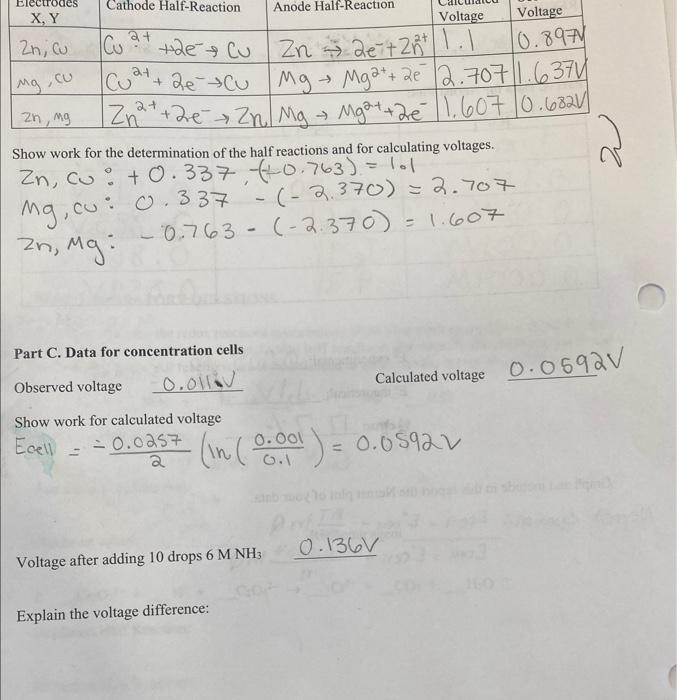 Electrodes Cathode Half-Reaction Anode Half-Reaction Calculated
X, Y Voltage Voltage
Zn, Cu Cu²⁺ +2e⁻ → Cu Zn → 2e⁻ + Zn²⁺ 1.1 0.897V
Mg, Cu Cu²⁺ + 2e⁻ → Cu Mg → Mg²⁺ + 2e⁻ 2.707 1.637V
Zn, Mg Zn²⁺ + 2e⁻ → Zn Mg → Mg²⁺ + 2e⁻ 1.607 0.682V
Show work for the determination of the half reactions and for calculating voltages.
Zn, Cu: +0.337 -(-0.763) = 1.1
Mg, Cu: 0.337 - (-2.370) = 2.707
Zn, Mg: -0.763 - (-2.370) = 1.607
Part C. Data for concentration cells
Observed voltage 0.011V Calculated voltage 0.0592V
Show work for calculated voltage
Ecell = -0.0257/2 (ln(0.001/0.1) = 0.0592V
Voltage after adding 10 drops 6 M NH₃ 0.136V
Explain the voltage difference: